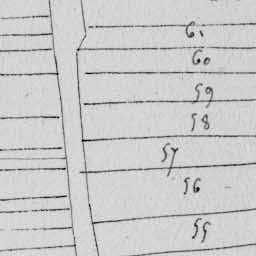 61
60
59
58
57
56
55